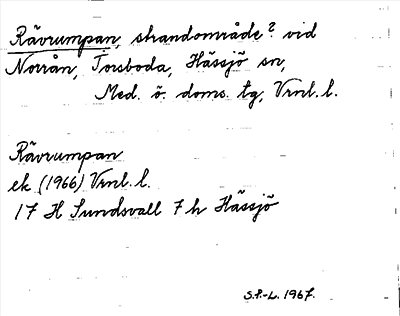 Rävrumpan, strandområde? vid
Norrån, Torsboda, Hässjö sn,
Med. ö. doms. tg, Vrnl. l.
Rävrumpan
ek (1966) Vrnl. l.
17 H Sundsvall 7 h Hässjö
S.P.-L. 1967.